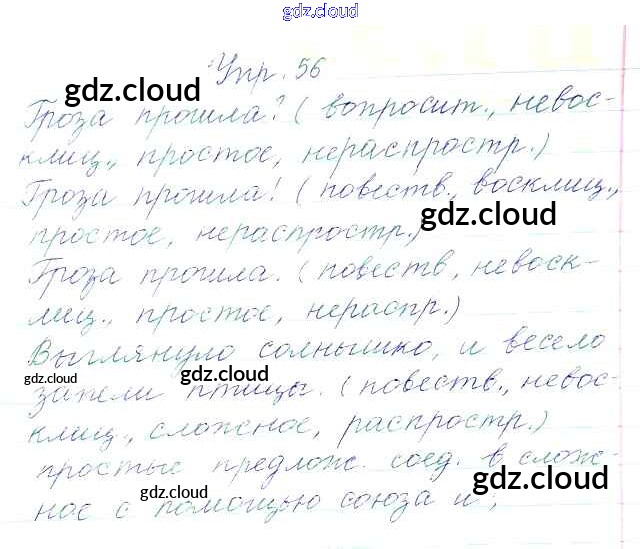 gdz.cloud
Упр. 56
gdz.cloud
gdz.cloud
Гроза прошла? (вопросит., невос-
клиц., простое, нераспростр.)
Гроза прошла! (повеств., восклиц.,
gdz.cloud
простое, нераспростр.)
Гроза прошла. (повеств, невоск-
лиц., простое, нераспр.)
Выглянуло солнышко, и весело
gdz.cloud
gdz.cloud
запели птицы. (повеств., невос-
клиц., сложное, распростр.)
простые предлож. соед. в слож-
gdz.cloud
gdz.cloud
ное с помощью союза и;